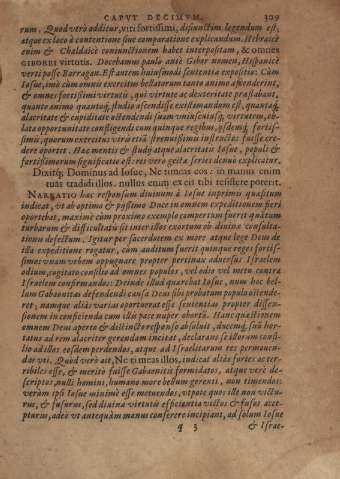 CAPVT DECIMVM. 309
rum. Quod verò additur, viri fortissimi, disiunctim legendum est,
atque ex loco à contentione siue comparatione explicandum. Hebraicè
enim & Chaldaicè coniunctionem habet interpositam, & omnes
GIBORRI virtutis. Docebamus paulò antè Gibor nomen, Hispanicè
verti posse Barragan. Est autem huiusmodi sententia expositio: Cùm
Iosue, imò cùm omni exercitu bellatorum tanto animo ascenderint,
& omnes fortissimi virtutis, qui virtute ac dexteritate præstabant,
quanto animo quantoq́; studio ascendisse existimandum est, quantaq́;
alacritate & cupiditate ostendendi suam vniuscuiusq́; virtutem, ob-
lata opportunitate confligendi cum quinque regibus, ysdemq́; fortis-
simis, quorum exercitus viris etiā strenuissimis instructos fuisse cre-
dere oportet. Hæc mentis & studij atque alacritatis Iosue, populi &
fortissimorum significatio est: res vero gesta serie denuo explicatur.
Dixitq́; Dominus ad Iosue, Ne timeas eos: in manus enim
tuas tradidi illos. nullus enim ex eis tibi resistere poterit.
NARRATIO hac responsum diuinum à Iosue inprimis quæsitum
indicat, vt ab optimo & pijssimo Duce in omnem expeditionem fieri
oportebat, maximè cùm proximo exemplo compertum fuerit quātum
turbarum & difficultatis sit inter illos exortum ob diuinæ consulta-
tionis defectum. Igitur per sacerdotem ex more atque lege Deus de
illa expeditione rogatur, cùm auditum fuerit quinque reges fortis-
simos vnam vrbem oppugnare propter pertinax aduersus Israelem
odium, cogitato consilio ad omnes populos, vel odio vel metu contra
Israelem confirmandos: Deinde illud quarebat Iosue, num hoc bel-
lum Gabaonitas defendendi causa Deus sibi probatum populo ostende-
ret, namque alias varias oportuerat esse sententias propter dissen-
sionem in conficienda cum illis pace nuper obortā. Hanc quæstionem
omnem Deus aperto & distincto responso absoluit, ducemq́; suū hor-
tatus ad rem alacriter gerendam incitat, declarans se illorum consi-
lio ad illos eosdem perdendos, atque ad Israelitarum res permouen-
das vti. Quod verò ait, Ne timeas illos, indicat aliàs fortes ac ter-
ribiles esse, & meritò fuisse Gabaonitis formidatos, atque verè de-
scriptos nulli homini, humano more bellum gerenti, non timendos:
verùm ipsi Iosue minimè esse metuendos, vtpote quos ille non victu-
rus, & fusurus, sed diuina virtutis efficientia victos & fusos acce-
pturus, adeò vt antequàm manus conserere incipiant, ad solum Iosue
q 3 & Israe-